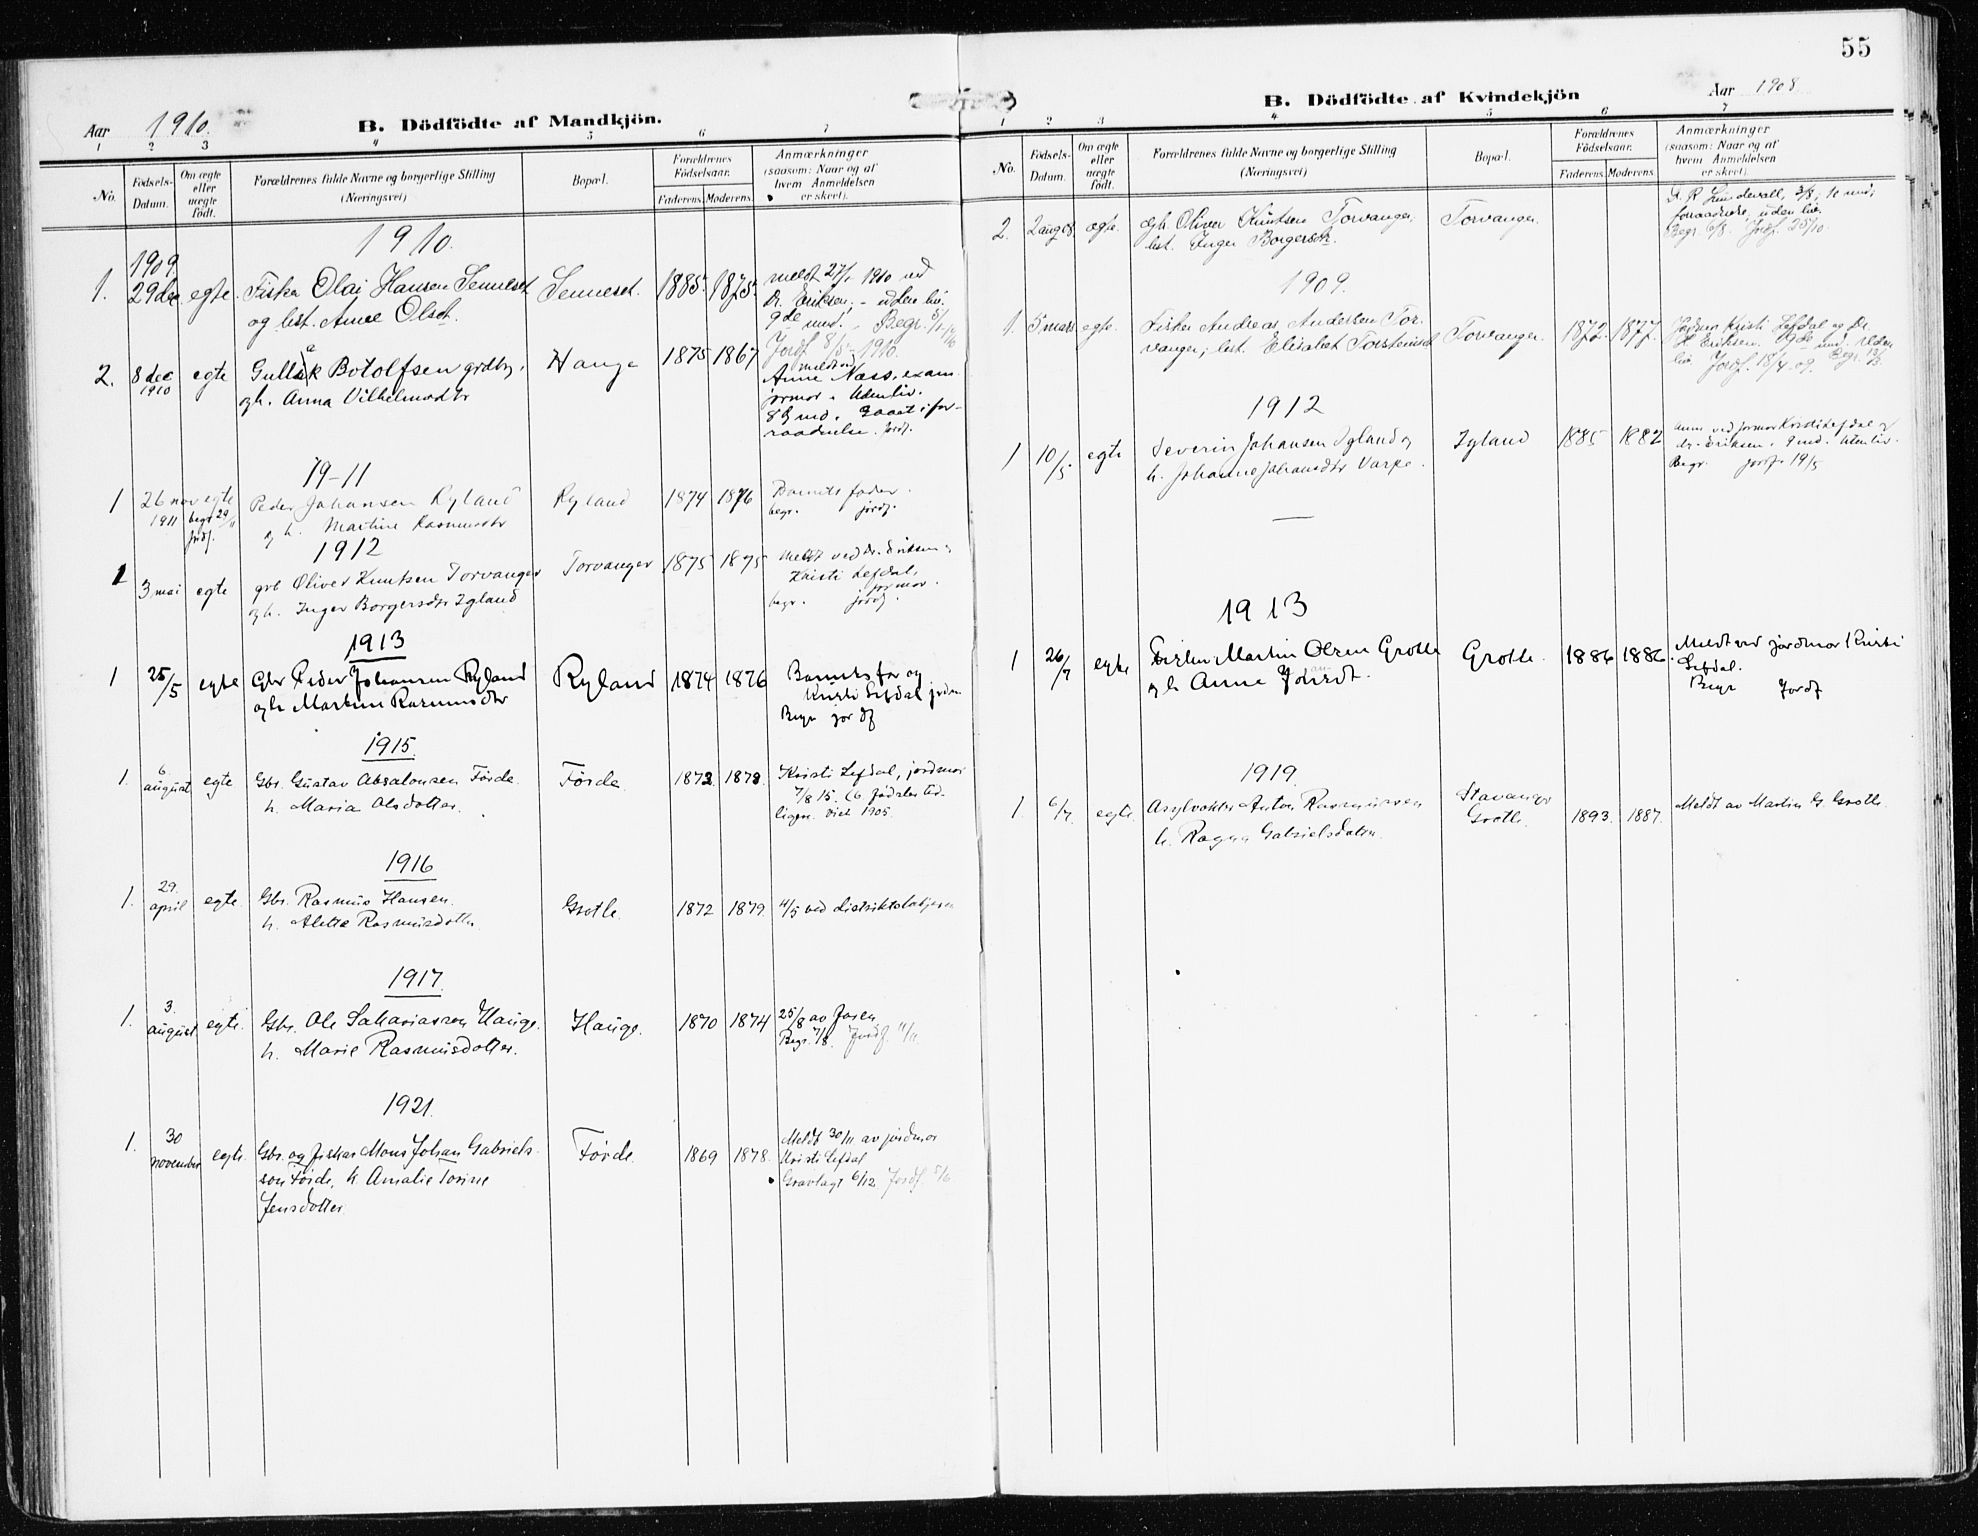 55
Aar 1910.
B. Dödfödte af Mandkjön.
1 2 3 4 5 6 7
No.
Födsels-Datum.
Om ægte eller uægte født.
Forældrenes fulde Navne og borgerlige Stilling (Næringsvei)
Bopæl.
Forældrenes Födselsaar.
Faderens. Moderens.
Anmærkninger (saasom: Naar og af hvem Anmeldelsen er skeet).
1910.
1. 1909 29 dec egte. Fisker Olai Hansen Senneset Senneset. 1885. 1875. meldt 27/1 1910 ved
og hst. Anne Olsdt. Dr. Eriksen. - uden liv.
9de mnd. Begr.
Jordf 8/5 1910.
2. 8 dec 1910 egte Gullak Botolfsen grdbr, Hauge 1875 1867 meldt ved
og h. Anna Vilhelmsdtr Anne Næss, exam.
jormor. Uten liv.
Gaaet i for-
raadnelse. Jordf.
19-11
1 26 nov 1911 egte begr 29/11 jordf. Peder Johansen Ryland Ryland 1874 1876 Barnets fader.
og h. Martine Rasmusdtr begr. jordf.
1912
1 3 mai egte grb Oliver Knutsen Torvanger Torvanger 1875 1875 Meldt ved Dr. Eriksen og
og h. Inger Borgersdtr Igland Kristi Lefdal,
jormor.
begr. jordf.
1913
1 25/5 egte Gbr Peder Johansen Ryland Ryland 1874 1876 Barnets far og
og h Martine Rasmusdtr Kristi Lefdal jordm.
Begr jordf
1915.
1. 6. august egte Gbr. Gustav Absalonsen Førde. Førde 1873 1873 Kristi Lefdal, jordmor
h. Maria Olsdotter. 7/8 15. (6 fødsler tid-
ligere. Viet 1905.
1916
1. 29. april egte. Gbr. Rasmus Hansen. Grotle. 1872 1879. 4/5 ved distriktslægen
h. Alette Rasmusdotter.
1917.
1. 3. august egte. Gbr. Ole Sakariassen Hauge. Hauge. 1870 1874 25/8 av faren
h. Marie Rasmusdotter. Begr. 7/8. Jordf. 11/11.
1921.
1. 30 november egte. Gbr. og fisker Mons Johan Gabriels- Førde. 1869 1878. Meldt 30/11 av jordmor
son Førde, h Amalie Torine Kristi Lefdal
Jensdotter. Gravlagt 6/12 Jordf. 5/6.
B. Dödfödte af Kvindekjön
Aar 1908
1 2 3 4 5 6 7
No.
Födsels-Datum.
Om ægte eller uægte født.
Forældrenes fulde Navne og borgerlige Stilling (Næringsvei)
Bopæl.
Forældrenes Födselsaar.
Faderens. Moderens.
Anmærkninger (saasom: Naar og af hvem Anmeldelsen er skeet).
2. 2 aug 08. ægte. Oliver Knutsen Torvanger, Torvanger. 3/8, 10 mnd,
hst. Inger Borgersdt. forraadnelse, uden liv.
Begr. 6/8. Jordf. 25/10.
1909.
1. 5 mars egte. Fisker Andreas Andersen Tor- Torvanger. 1872. 1877. Jordmor Kristi Lefdal og Dr.
vanger, hst. Elisabet Torsteinsdt H. Eriksen. 9de md. Uden
liv. Jordf. 18/4 09. Begr.
1912
1 10/5 egte Severin Johansen Igland og Igland 1885 1882 anm ved jormor Kristi Lefdal og
h. Johanne Johansdtr Varpe. dr. Eriksen. 9 md. Uten liv.
Begr. jordf. 19/5
1913
1 26/7 egte Fisker Martin Olsen Grotle Grotle. 1886 1886. Meldt ved jordmor Kristi
og h Anne Lefdal.
Begr Jordf
1919.
1. 6/7. egte. Asylvokter Anton Rasmussen Stavanger 1893. 1887. Meldt av Martin G. Grotle.
h. Ragna Gabrielsdatter. Grotle.